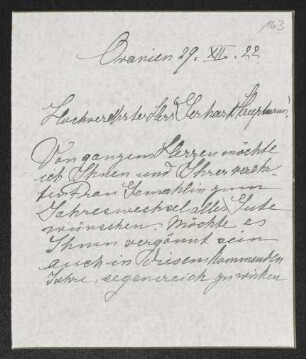 163
Oranien 29. XII. 22
Hochverehrter Herr Gerhart Hauptmann,
Von ganzem Herzen möchte
ich Ihnen und Ihrer verehr-
ten Frau Gemahlin zum
Jahreswechsel alles Gute
wünschen. Möchte es
Ihnen vergönnt sein
auch in diesem kommenden
Jahre, segensreich zu wirken